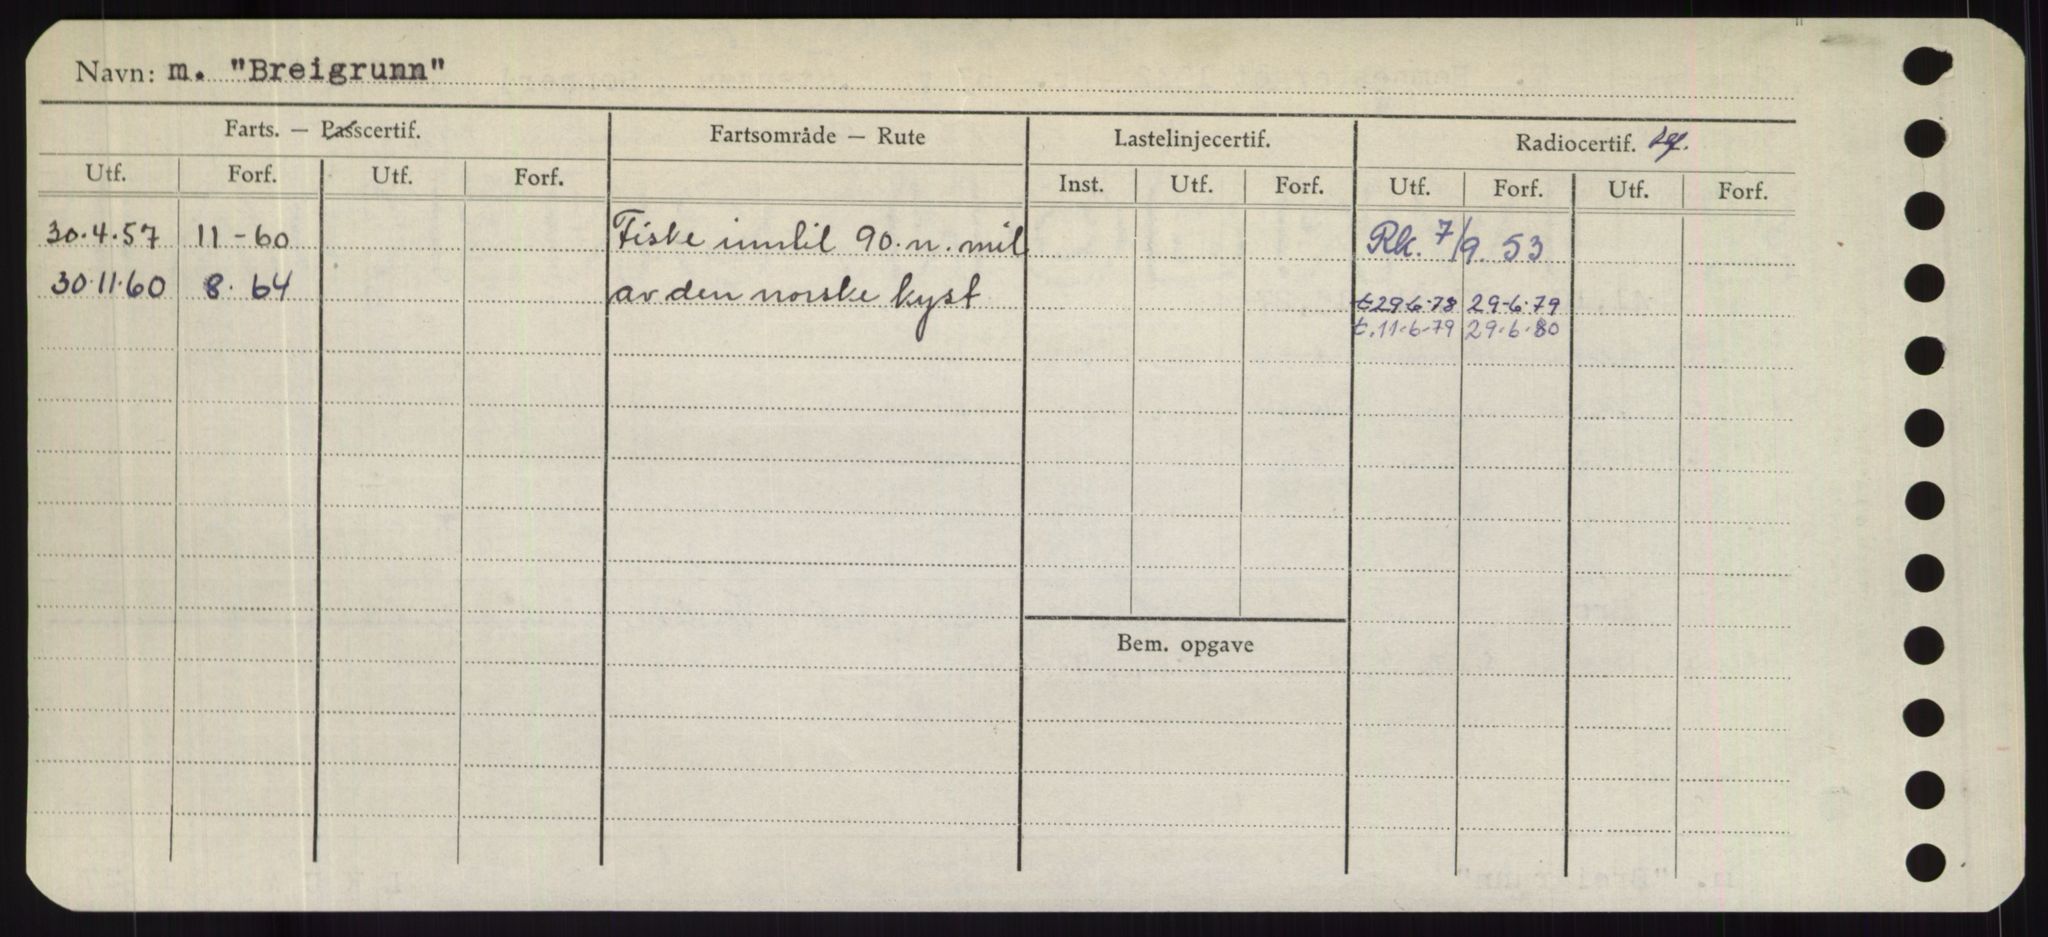 Navn: m. "Breigrunn"
Farts. — Passcertif. Fartsområde — Rute Lastelinjecertif. Radiocertif.
Utf. Forf. Utf. Forf. Inst. Utf. Forf. Utf. Forf. Utf. Forf.
30.4.57 11-60 Fiske inntil 90.n.mil Rk. 7/9.53
30.11.60 8.64 av den norske kyst
t29.6.78 29-6.79
t.11.6.79 29.6.80
Bem. opgave